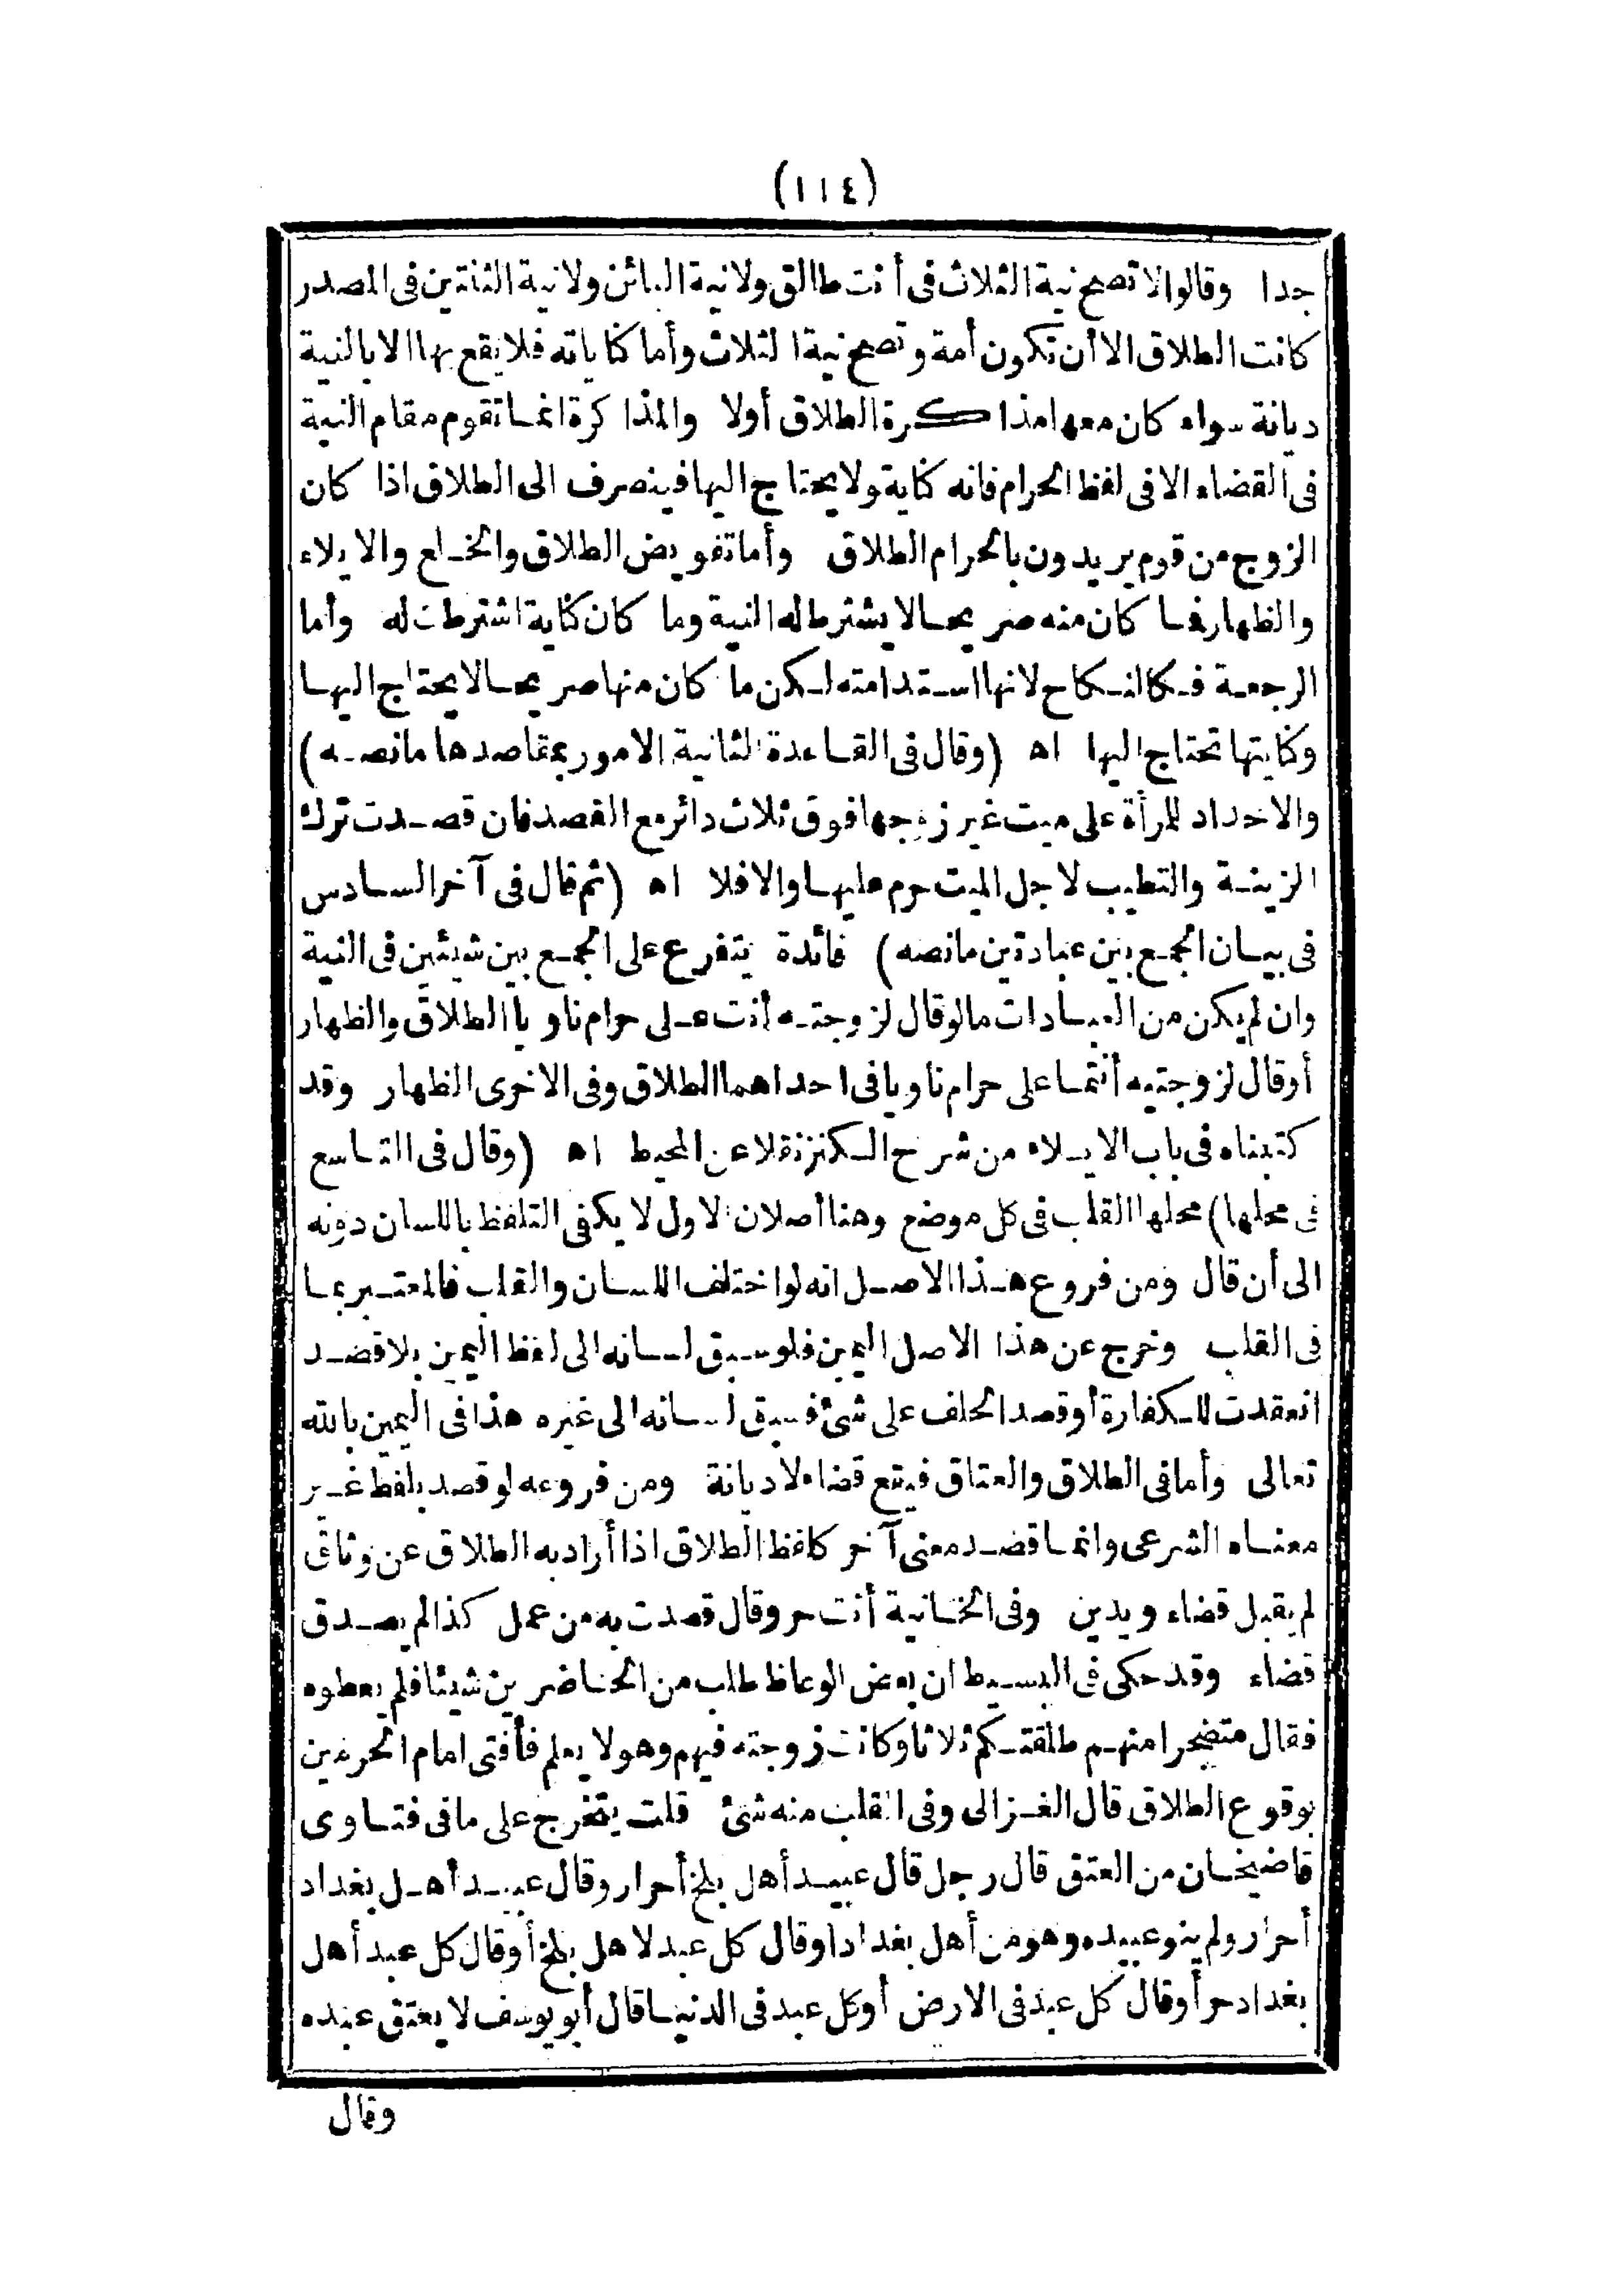 (١١٤)
جدا وقالوا لا تصح نية الثلاث فى أنت طالق ولا نية البائن ولا نية الثنتين فى المصدر
كانت الطلاق الا أن تكون أمة وتصح نية الثلاث وأما كناياته فلا يقع بها الا بالنية
ديانة سواء كان معها مذاكرة الطلاق أولا والمذاكرة انما تقوم مقام النية
فى القضاء الا فى لفظ الحرام فانه كناية ولا يحتاج اليها فينصرف الى الطلاق اذا كان
الزوج من قوم يريدون بالحرام الطلاق وأما تفويض الطلاق والخلع والايلاء
والظهار فما كان منه صريحا لا يشترط له النية وما كان كناية اشترطت له وأما
الرجعة فكالنكاح لانها استدامته لكن ما كان منها صريحا لا يحتاج اليها
وكنايتها تحتاج اليها اه (وقال فى القاعدة الثانية الامور بمقاصدها ما نصه)
والاحداد للمرأة على ميت غير زوجها فوق ثلاث دائر مع القصد فان قصدت ترك
الزينة والتطيب لاجل الميت حرم عليها والا فلا اه (ثم قال فى آخر السادس
فى بيان الجمع بين عبادتين ما نصه) فائدة يتفرع على الجمع بين شيئين فى النية
وان لم يكن من العبادات ما لو قال لزوجته أنت على حرام ناويا الطلاق والظهار
أو قال لزوجتيه أنتما على حرام ناويا فى احداهما الطلاق وفى الاخرى الظهار وقد
كتبناه فى باب الايلاء من شرح الكنز نقلا عن المحيط اه (وقال فى التاسع
فى محلها) محلها القلب فى كل موضع وهنا أصلان الاول لا يكفى التلفظ باللسان دونه
الى أن قال ومن فروع هذا الاصل انه لو اختلف اللسان والقلب فالمعتبر بما
فى القلب وخرج عن هذا الاصل اليمين فلو سبق لسانه الى لفظ اليمين بلا قصد
انعقدت للكفارة أو قصد الحلف على شئ فسبق لسانه الى غيره هذا فى اليمين بالله
تعالى وأما فى الطلاق والعتاق فيقع قضاء لا ديانة ومن فروعه لو قصد بلفظ غير
معناه الشرعى وانما قصد معنى آخر كلفظ الطلاق اذا أراد به الطلاق عن وثاق
لم يقبل قضاء ويدين وفى الخانية أنت حر وقال قصدت به من عمل كذا لم يصدق
قضاء وقد حكى فى البسيط ان بعض الوعاظ طلب من الحاضرين شيئا فلم يعطوه
فقال متضجرا منهم طلقتكم ثلاثا وكانت زوجته فيهم وهو لا يعلم فأفتى امام الحرمين
بوقوع الطلاق قال الغزالى وفى القلب منه شئ قلت يتخرج على ما فى فتاوى
قاضيخان من العتق قال رجل قال عبيد أهل بلخ أحرار وقال عبيد أهل بغداد
أحرار ولم ينو عبيده وهو من أهل بغداد أو قال كل عبد لاهل بلخ أو قال كل عبد أهل
بغداد حر أو قال كل عبد فى الارض أو كل عبد فى الدنيا قال أبو يوسف لا يعتق عبده
وقال